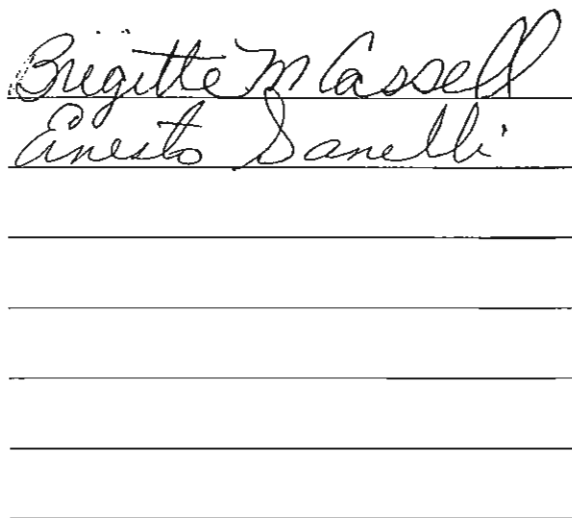 Brigitte M Cassell
Ernesto Sanelli